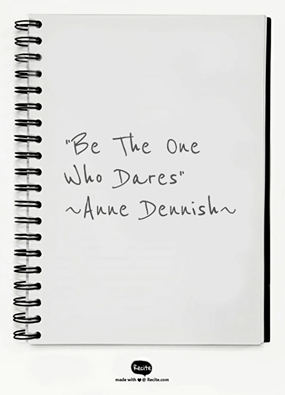 "Be The One
Who Dares"
~Anne Dennish~
Recite
made with ❤ @ Recite.com